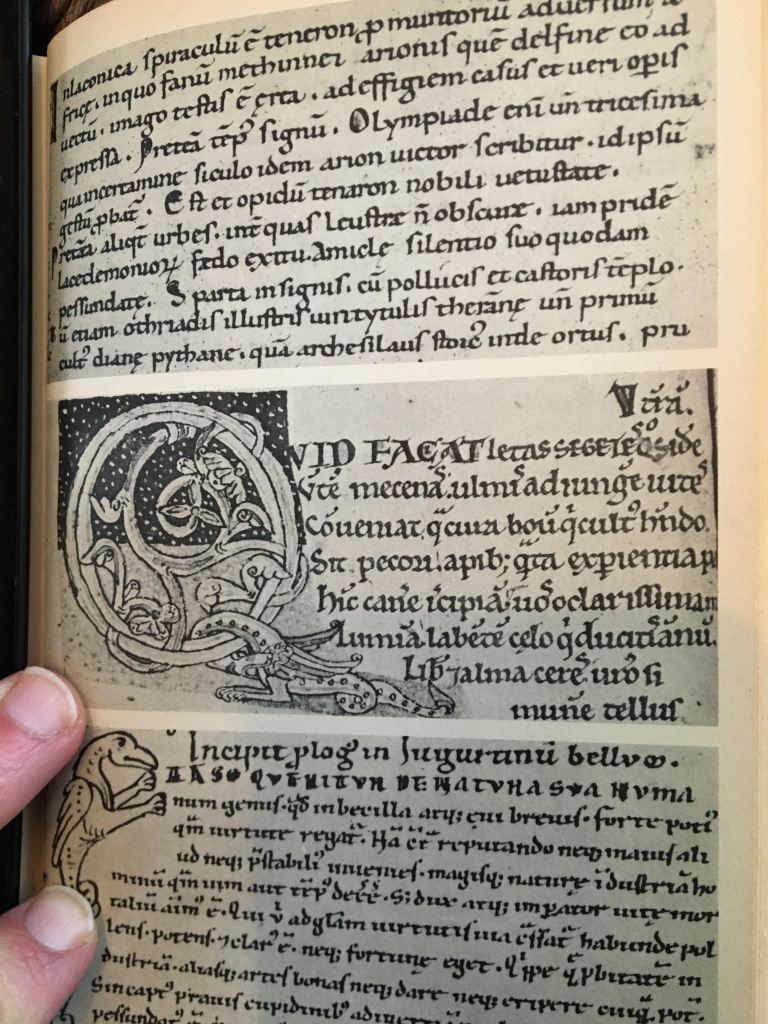 Inlaconica spiraculū ē teneron ꝓmuntoriū aduersum a
fricę. inquo fanū methinnei arionis quē delfine eo ad
uectū. imago testis ē ęrea. ad effigiem casus et ueri opis
expressa. Pretea tēp signū. Olympiade enī un tricesima
qua incertamine siculo idem arion uictor scribitur. id ipsū
gestū ꝓbat᷒. Est et opidū tenaron nobili uetustate.
Pretea aliqt urbes. int̄ quas leustrę ñ obscurę. iam pridē
lacedemonioꝝ fędo exitu. Amiclę silentio suo quodam
pessundatę. Sparta insignis. cū pollucis et castoris tēplo.
ū etiam othriadis illustris uiri tytulis therānę un primū
cult᷒ dianę pythanę. quā archesilaus stoic᷒ inde ortus. pru
QVID FACAT letas segetes q̊ side
Vtē mecena. ulmis adiunge uite
Cōueniat. q̄ cura boū q̄ cult᷒ hn̄do
Sit pecori. apib; q̄ta exꝑientia ꝑ
hic cañe icipiā. uos o clarissima
Lumina labētē celo q̄ ducitis anū.
Lib᷒ ⁊alma cerē uro si
munē tellus
Incipit ꝓlog᷒ in Iugurtinū bellū.
FALSO QUERITUR DE NATURA SUA HUMA
num genus. qđ inbecilla atq; eui breuis. forte poti᷒
qm̄ uirtute regat᷒. Nā c̄t reputando neq; maius ali
ud neq; p̄stabili᷒ inuenies. magisq; naturę īdustriā ho
minū qm̄ uim aut tēp᷒ deēē. S; dux atq; imꝑator uitę mor
taliū aīm᷒ ē. Qui ů ad glām uirtutis uia c̄ssat᷒ habunde pol
lens. potens. ⁊clar᷒ ē. neq; fortunę eget. Q̄ppe q̄ ꝓbitatē in
dustriā. aliasq; artes bonas neq; dare neq; eripere cuiq̄. pot᷒.
Sin capt᷒ prauis cupidinib᷒